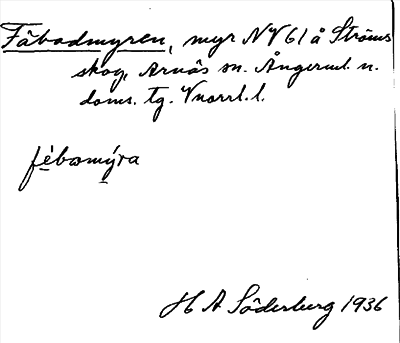 Fäbodmyren, myr NV 61 å Ströms
skog, Arnäs sn. Ångerml. n.
doms. tg. Vnorrl. l.
fèbomýra
H A Söderberg 1936